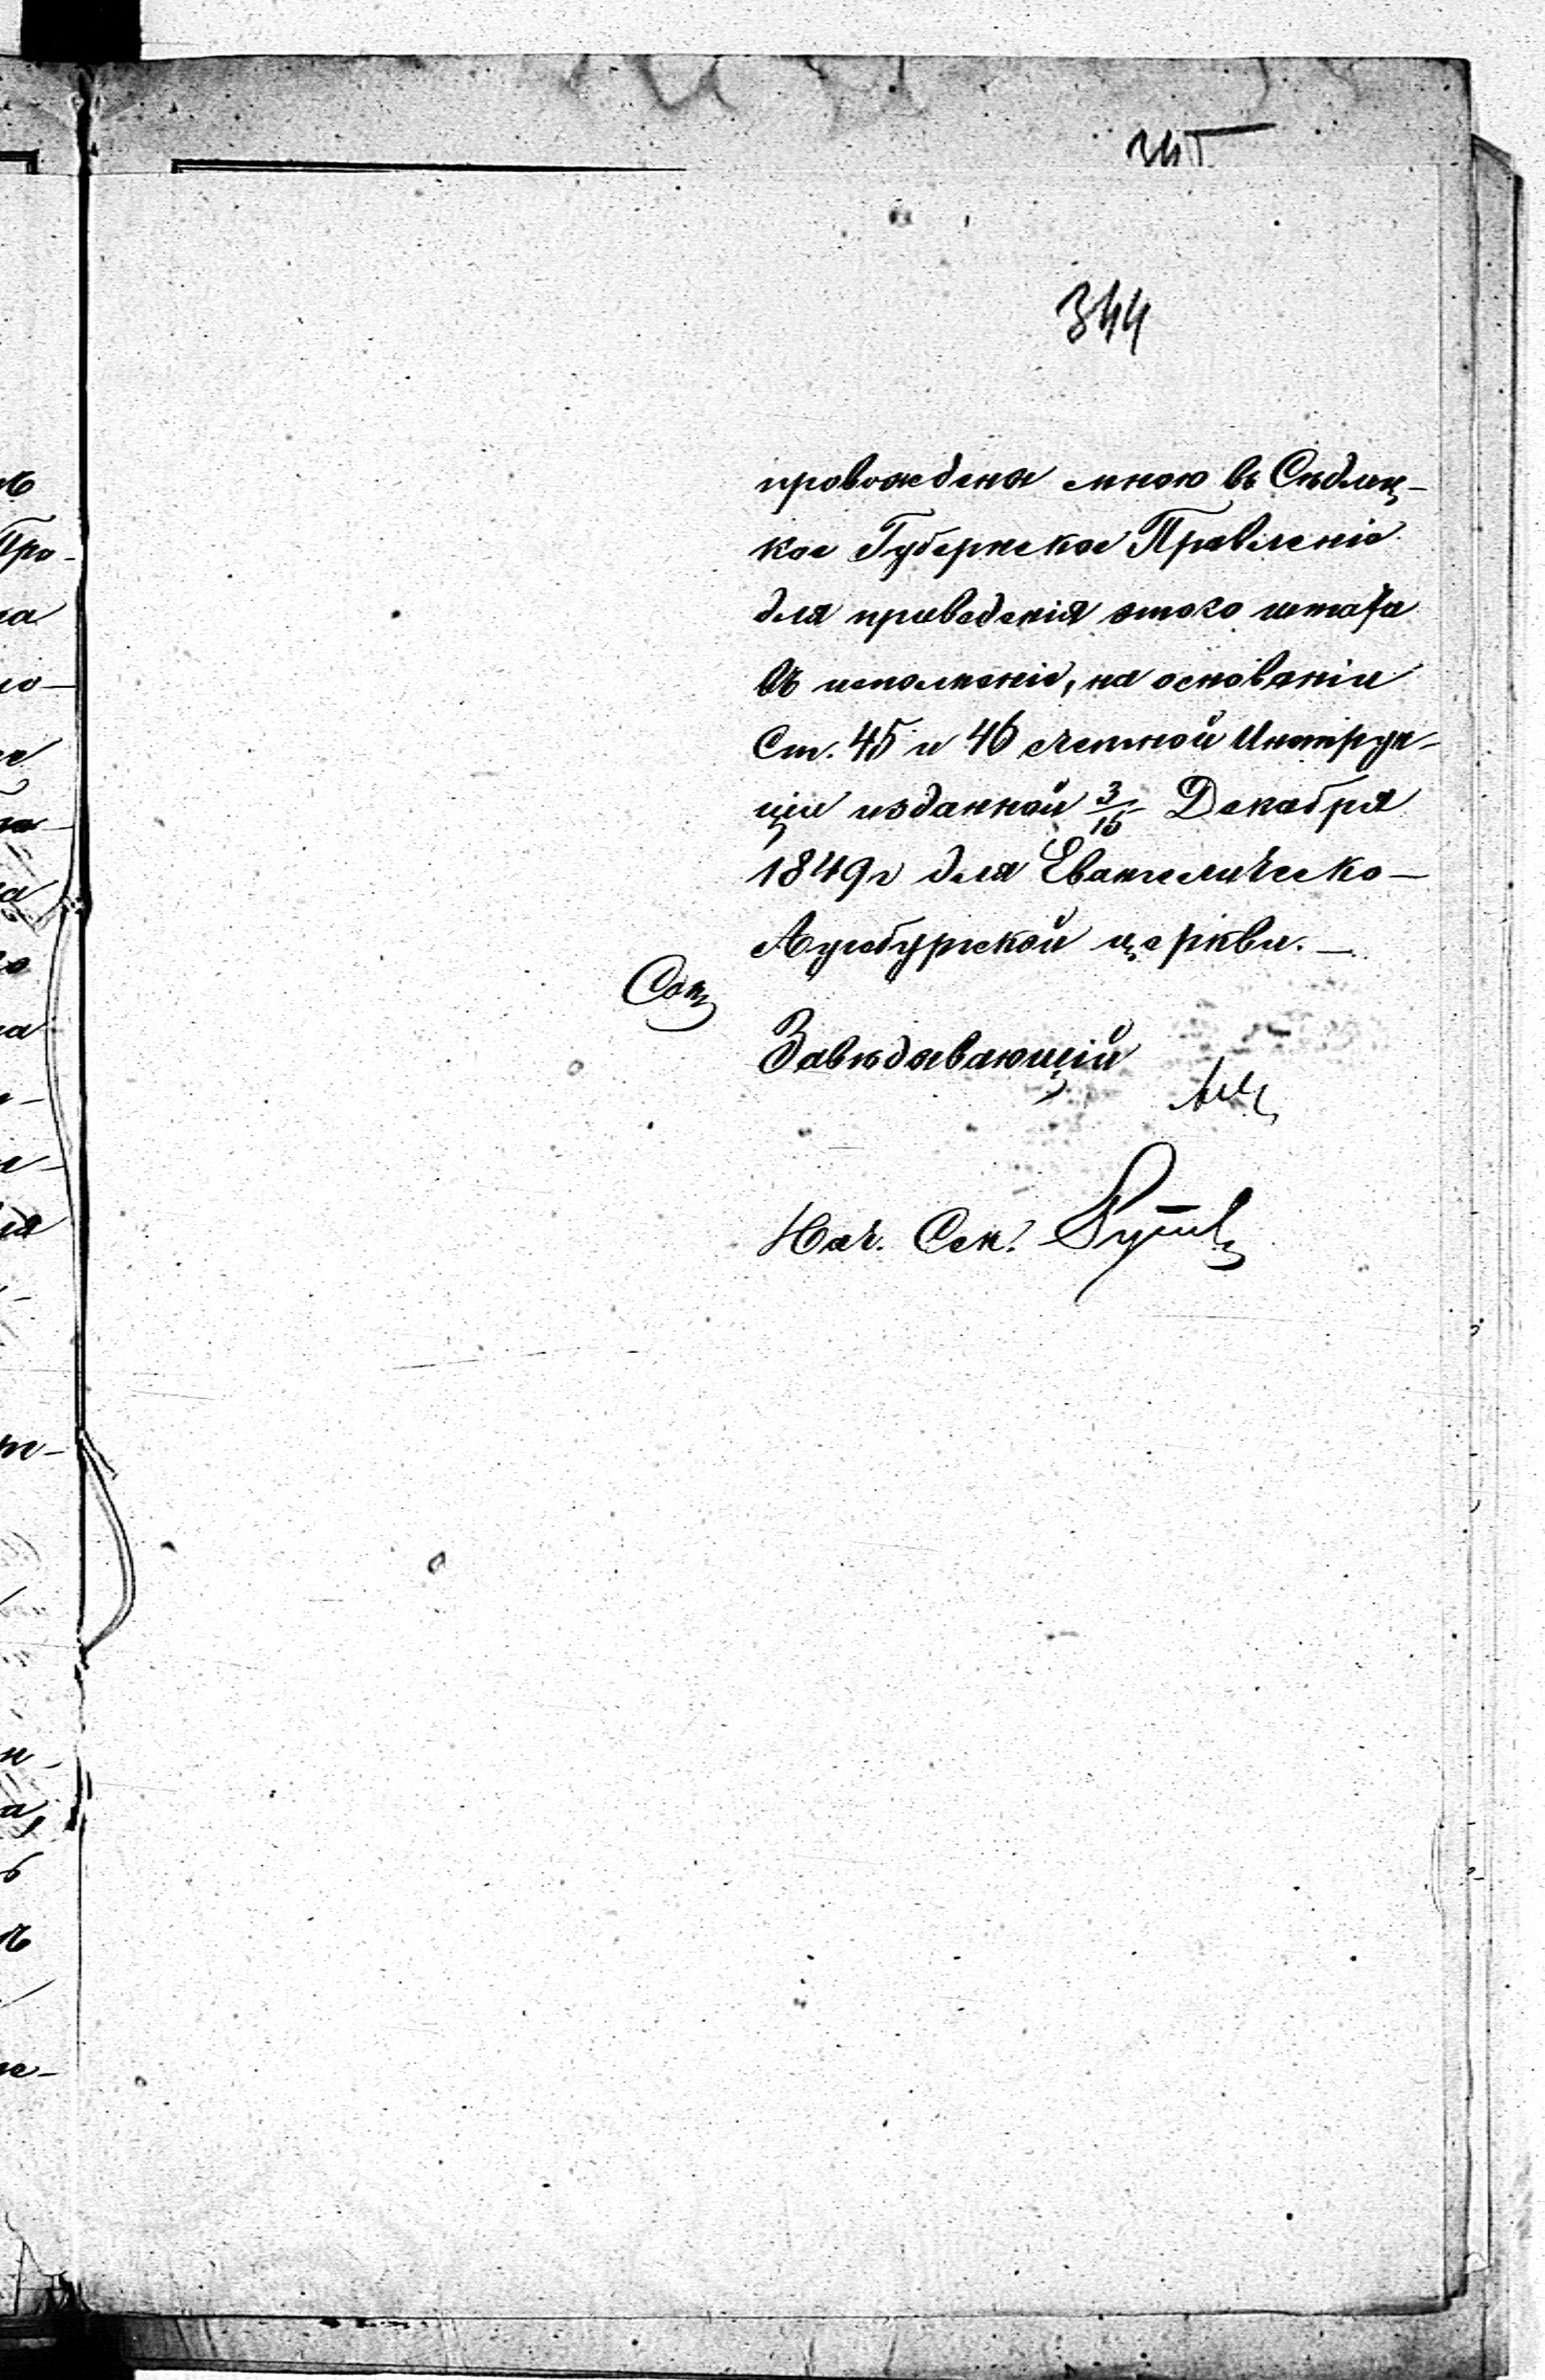 345
344
провождены мною въ Сѣдлец-
кое Губернское Правленіе
для приведенія этого штата
въ исполненіе, на основаніи
Ст. 45 и 46 счетной Инструк-
ціи изданной 3/15 Декабря
1849 г для Евангелическо-
Аугсбургской церкви. —
Завѣдывающій
Нач. Сек.